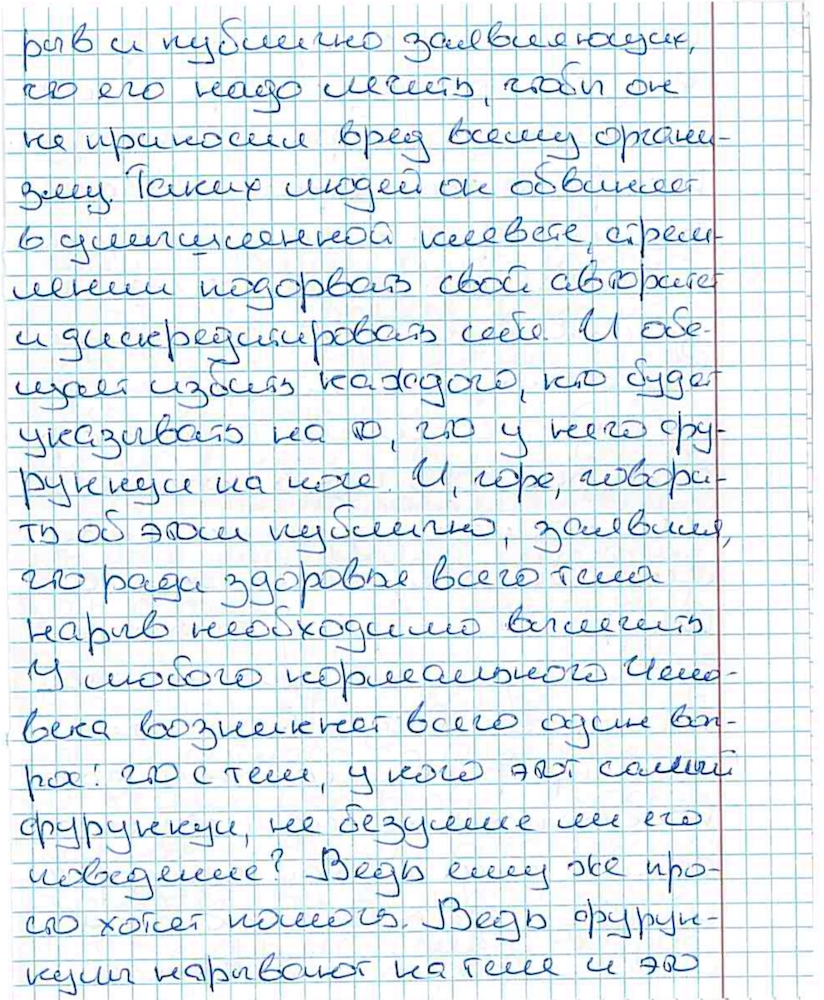 рыв и публично заявляющих,
что его надо лечить, чтобы он
не приносил вред всему органи-
зму. Таких людей он обвиняет
в умышленной клевете, стрем-
лении подорвать свой авторитет
и дискредитировать себя. И обе-
щает избить каждого, кто будет
указывать на то, что у него фу-
рункул на носе. И, горе, говори-
ть об этом публично, заявляя,
что ради здоровья всего тела
нарыв необходимо вылечить
У любого нормального чело-
века возникнет всего один воп-
рос: что с тем, у кого этот самый
фурункул, не безумие ли его
поведение? Ведь ему же про-
сто хотят помочь. Ведь фурун-
кулы нарывают на теле и это